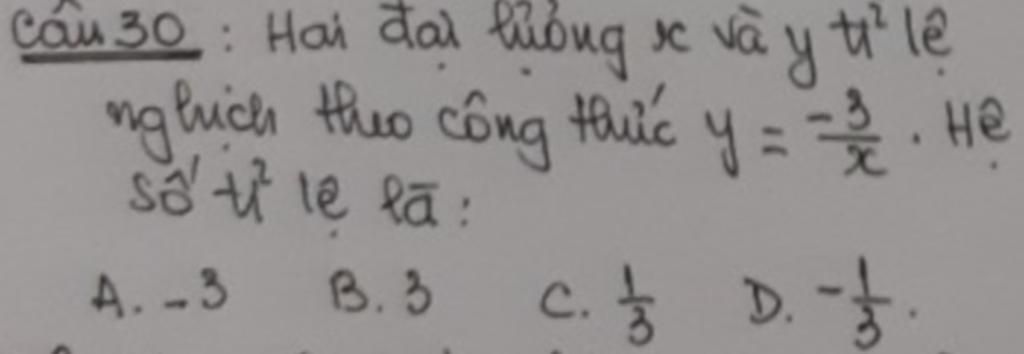 Câu 30 : Hai đại lượng x và y tỉ lệ
nghịch theo công thức y = -3/x . Hệ
số tỉ lệ là :
A. -3 B. 3 C. 1/3 D. -1/3 .